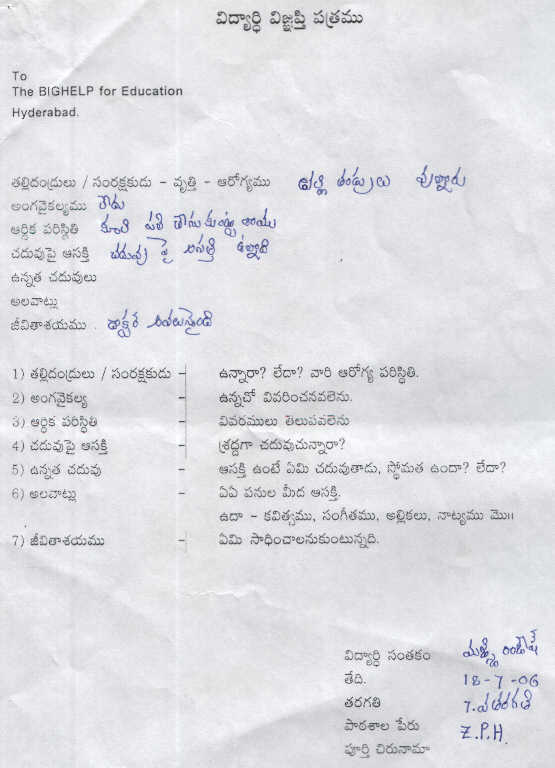 విద్యార్థి విజ్ఞప్తి పత్రము
To
The BIGHELP for Education
Hyderabad.
తల్లిదండ్రులు / సంరక్షకుడు - వృత్తి - ఆరోగ్యము తల్లి తండ్రులు వున్నారు
అంగవైకల్యము లేదు
ఆర్థిక పరిస్థితి కూలి పని
చదువుపై ఆసక్తి చదువు పై ఆసక్తి ఉన్నది
ఉన్నత చదువులు
అలవాట్లు
జీవితాశయము . డాక్టర్
1) తల్లిదండ్రులు / సంరక్షకుడు - ఉన్నారా? లేదా? వారి ఆరోగ్య పరిస్థితి.
2) అంగవైకల్య - ఉన్నచో వివరించవలెను.
3) ఆర్థిక పరిస్థితి - వివరములు తెలుపవలెను
4) చదువుపై ఆసక్తి - శ్రద్దగా చదువుచున్నారా?
5) ఉన్నత చదువు - ఆసక్తి ఉంటే ఏమి చదువుతాడు, స్థోమత ఉందా? లేదా?
6) అలవాట్లు - ఏఏ పనుల మీద ఆసక్తి.
ఉదా - కవిత్వము, సంగీతము, అల్లికలు, నాట్యము మొ॥
7) జీవితాశయము - ఏమి సాధించాలనుకుంటున్నది.
విద్యార్థి సంతకం
తేది. 18-7-06
తరగతి 7.వ తరగతి
పాఠశాల పేరు Z.P.H.
పూర్తి చిరునామా